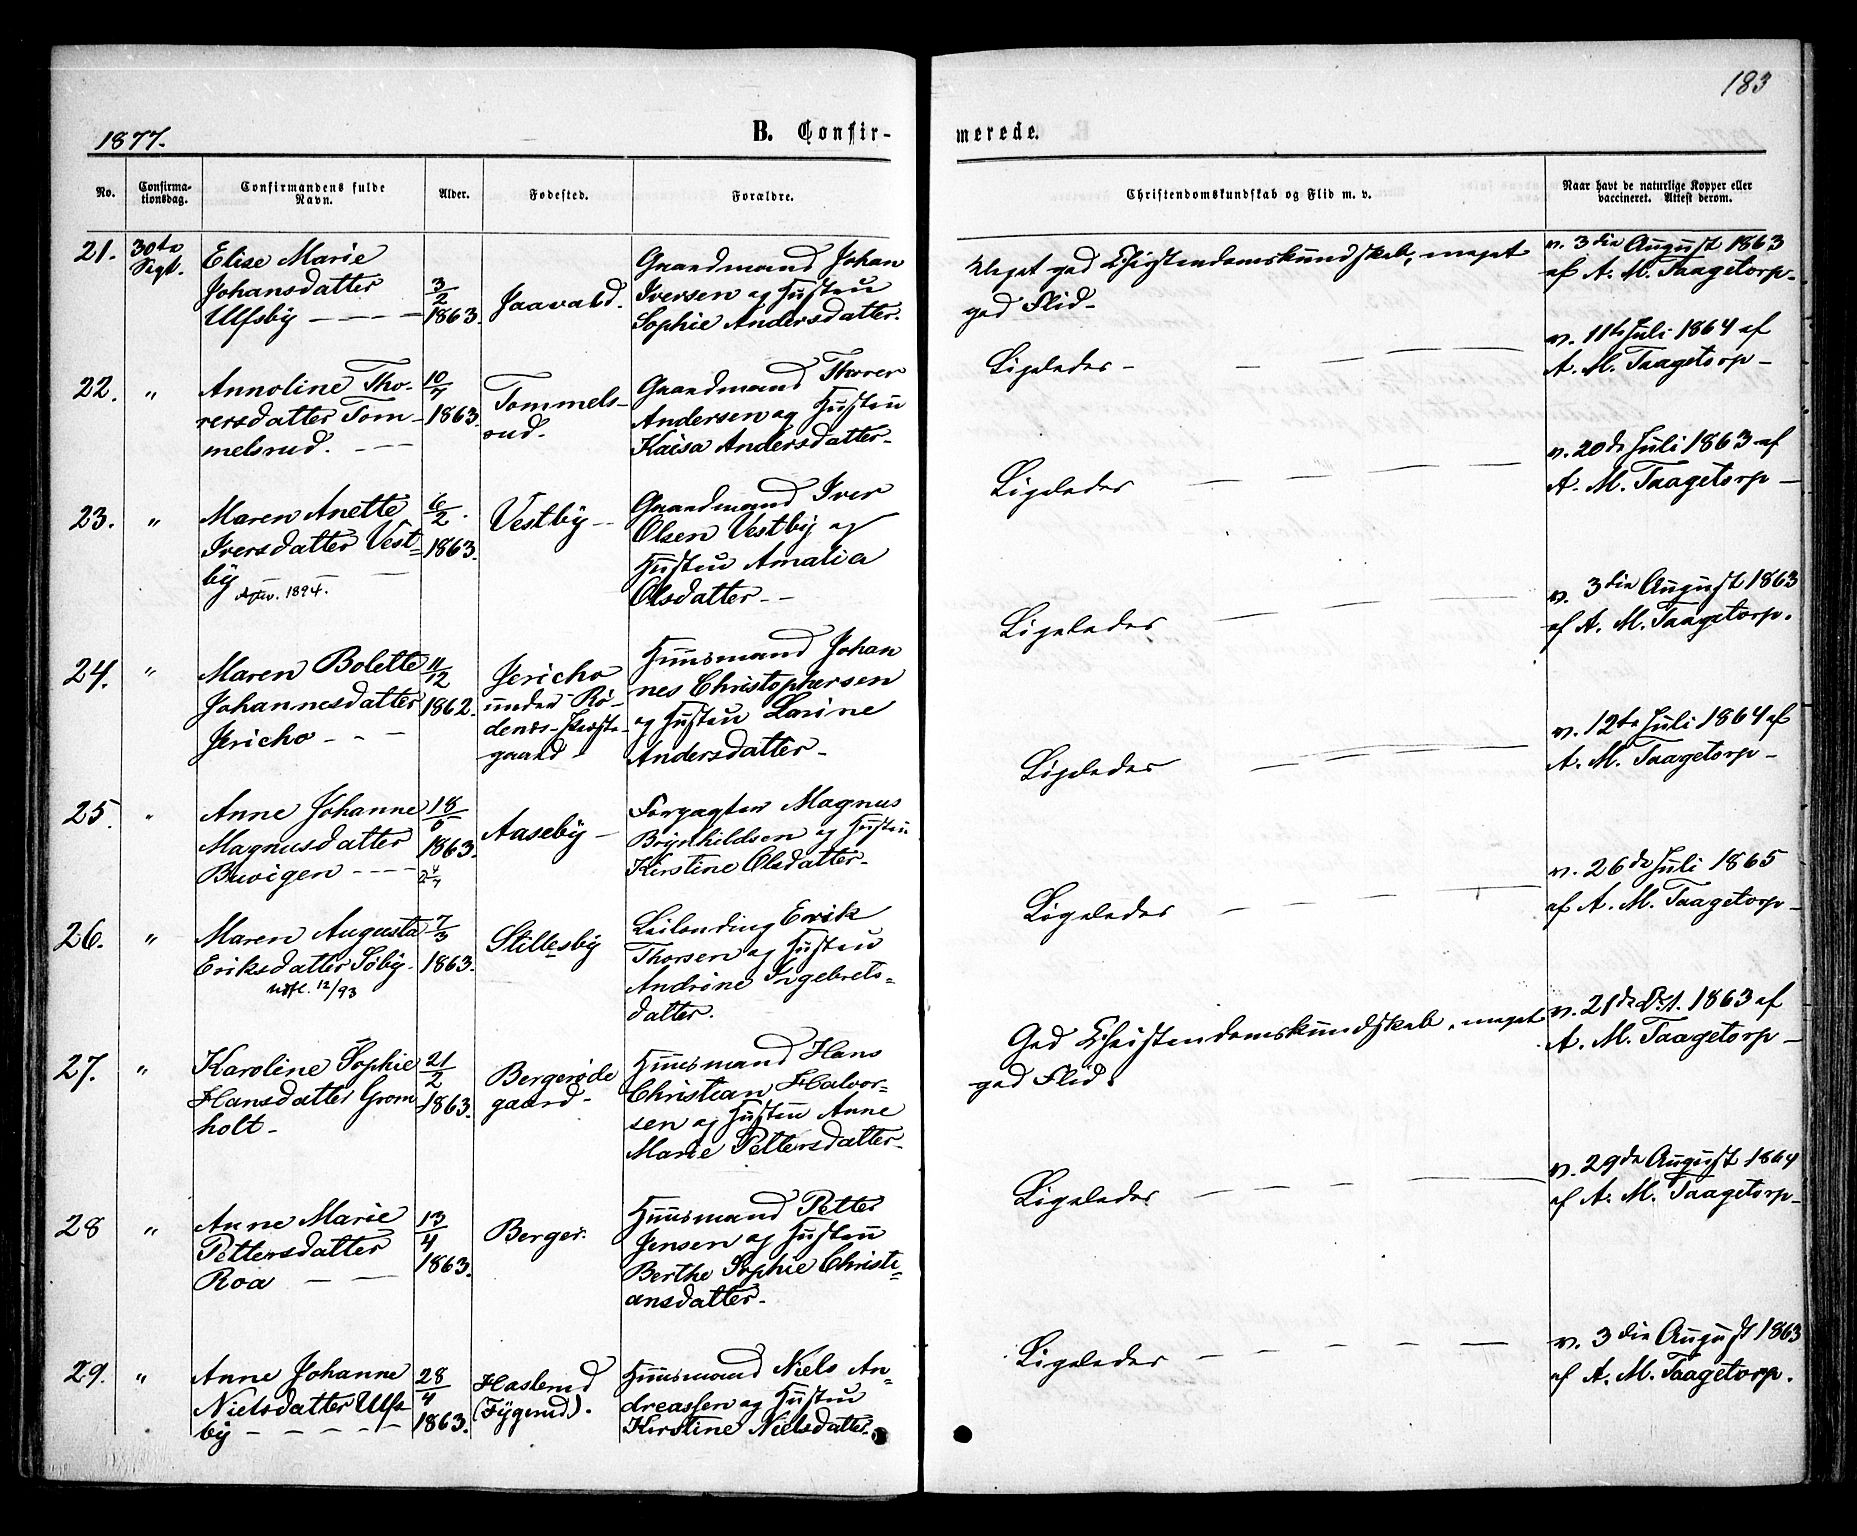 183
1877.
B. Confir-
merede.
No.
Confirma-
tionsdag.
Confirmandens fulde
Navn.
Alder.
Fødested.
Forældre.
Christendomskundskab og Flid m. v.
Naar havt de naturlige Kopper eller
vaccineret. Attest derom.
21.
30te
Sept.
Elise Marie
Johansdatter
Ulfsby
3/2
1863.
Jaavald.
Gaardmand Johan
Iversen og Hustru
Sophie Andersdatter.
Meget god Christendomskundskab, meget
god Flid.
v. 3die August 1863
af A. M. Taagetorp.
22.
"
Annoline Tho-
rersdatter Tom-
melsrud.
10/7
1863.
Tommels-
rud.
Gaardmand Thorer
Andersen og Hustru
Kaisa Andersdatter.
Ligeledes
v. 11te Juli 1864 af
A. M. Taagetorp
23.
"
Maren Anette
Iversdatter Vest-
by
1894.
6/2.
1863.
Vestby
Gaardmand Iver
Olsen Vestby og
Hustru Amalia
Olsdatter.
Ligeledes
v. 20de Juli 1863 af
A. M. Taagetorp
24.
"
Maren Bolette
Johannesdatter
Jericho
11/12
1862.
Jericho
under Rø-
denes Præste-
gaard
Huusmand Johan
nes Christophersen
og Hustru Larine
Andersdatter
Ligeledes
v. 3die August 1863
af A. M. Taagetorp.
25.
"
Anne Johanne
Magnusdatter
Buvigen
18/6
1863.
Aaseby
Forpagter Magnus
Brynhildsen og Hustru
Kirstine Olsdatter.
Ligeledes
v. 12te Juli 1864 af
A. M. Taagetorp
26.
"
Maren Augusta
Eriksdatter Søby.
Udfl. 12/93
7/3
1863.
Stillesby
Leilending Erik
Thorsen og Hustru
Andrine Ingebrets-
datter.
Ligeledes
v. 26de Juli 1865
af A. M. Taagetorp
27.
"
Karoline Sophie
Hansdatter Grom
holt
21/2
1863.
Bergerøde
gaard
Huusmand Hans
Christian Halvor-
sen og Hustru Anne
Marie Pettersdatter
God Christendomskundskab, meget
god Flid.
v. 21de Oct. 1863 af
A. M. Taagetorp
28
"
Anne Marie
Pettersdatter
Roa
13/4
1863.
Berger.
Huusmand Petter
Jensen og Hustru
Berthe Sophie Christi-
ansdatter
Ligeledes
v. 29de August 1864
af A. M. Taagetorp
29.
"
Anne Johanne
Nielsdatter Ulfs
by
28/4
1863.
Haslerud
(Fygerud).
Huusmand Niels An-
dreassen og Hustru
Kirstine Nielsdatter.
Ligeledes
v. 3die August 1863
af A. M. Taagetorp.